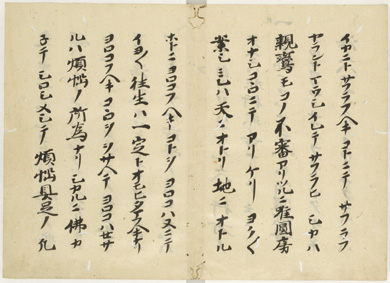 イカニトサフラフヘキコトニテサフラフ
ヤラントマウシイレテサフラヒシカハ
親鸞モコノ不審アリツルニ唯圓房
オナシコヽロニテアリケリヨク〱
案シミレハ天ニオトリ地ニオトル
ホトニヨロコフヘキコトヲヨロコハヌニテ
イヨ〱往生ハ一定トオモヒタマフヘキナリ
ヨロコフヘキコヽロヲオサヘテヨロコハセサ
ルハ煩惱ノ所為ナリシカルニ佛カ
子テシロシメシテ煩惱具足ノ凡